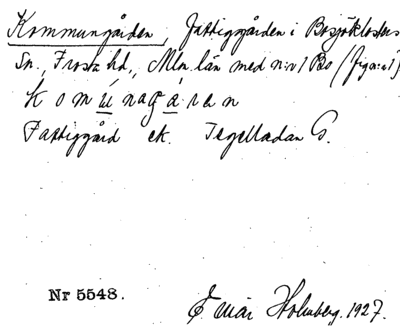 Kommungården, Fattiggården i Bosjökloster
Sn, Frosta hd, Mlm. län med n:r 1 Bo (fig:r 1)
komúnagåran
Fattiggård ek. Tegelladan G.
Nr 5548. Einar Holmberg. 1927.